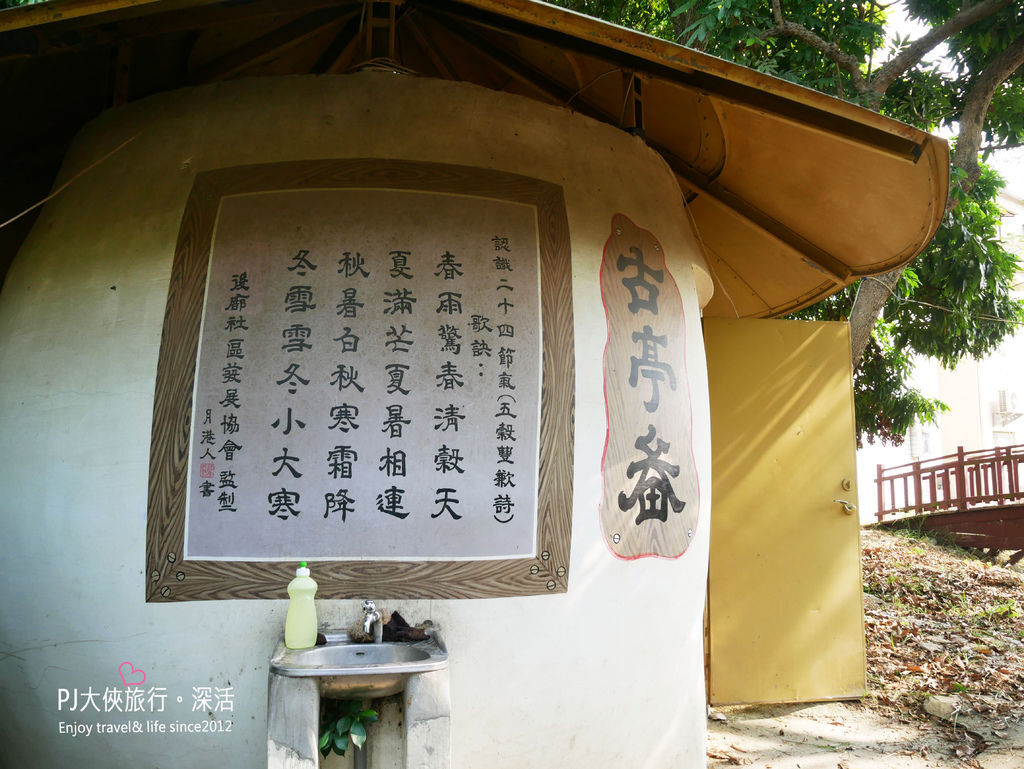 古亭畚
認識二十四節氣(五穀雙歉詩)
歌訣:
春雨驚春清穀天
夏滿芒夏暑相連
秋暑白秋寒霜降
冬雪雪冬小大寒
後廍社區發展協會 監製
月港人 書
PJ大俠旅行。深活
Enjoy travel& life since2012